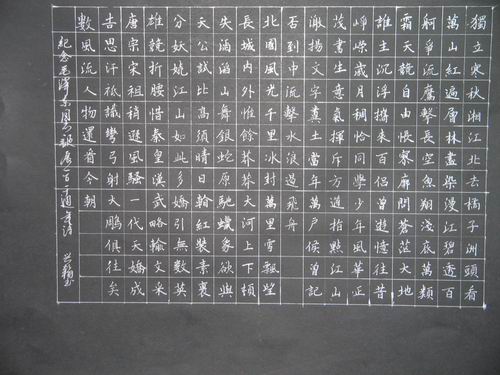 獨立寒秋湘江北去橘子洲頭看
萬山紅遍層林盡染漫江碧透百
舸爭流鷹擊長空魚翔淺底萬類
霜天競自由悵寥廓問蒼茫大地
誰主沉浮攜來百侶曾遊憶往昔
崢嶸歲月稠恰同學少年風華正
茂書生意氣揮斥方遒指點江山
激揚文字糞土當年萬戶侯曾記
否到中流擊水浪遏飛舟
北國風光千里冰封萬里雪飄望
長城內外惟餘莽莽大河上下頓
失滔滔山舞銀蛇原馳蠟象欲與
天公試比高須晴日看紅裝素裹
分妖嬈江山如此多嬌引無數英
雄競折腰惜秦皇漢武略輸文采
唐宗宋祖稍遜風騷一代天嬌成
吉思汗祗識彎弓射大鵰俱往矣
數風流人物還看今朝
紀念毛澤東